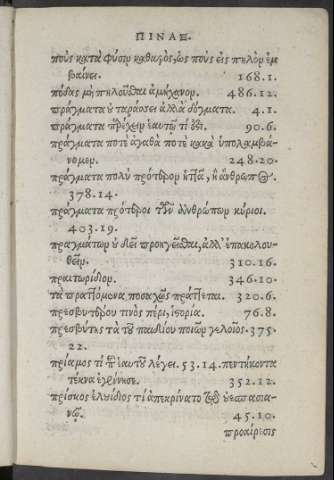 ΠΙΝΑΞ.
ποὺς κατὰ φύσιν καθαρὸς, ὡς ποὺς εἰς πηλὸν ἐμ
βαίνει. 168.1.
πόδας μὴ πηλοῦσθαι ἀμήχανον. 486.12.
πράγματα ὐ ταράσσει ἀλλὰ δόγματα. 4.1.
πράγματα παρέχειν ἑαυτῷ τί ὅζι. 90.6.
πράγματα ποτὲ ἀγαθὰ ποτὲ κακὰ ὑπολαμβά-
νομεν. 248.20.
πράγματα πολὺ πρότερον, ἢ ἄνθρωπος.
378.14.
πράγματα πρότεροι τῶν ἀνθρώπων κύριοι.
403.19.
πραγμάτων ὐ δεῖ προηγεῖσθαι, ἀλλ' ἐπακολου-
θεῖν. 310.16.
πραιτωρίδιον. 346.10.
τὰ πραττόμενα ποσαχῶς πράττεται. 320.6.
πρεσβυτέρου τινὸς πέρι, ἱστορία. 76.8.
πρεσβύτης τὰ τοῦ παιδίου ποιῶν γελοῖος. 375.
22.
πρίαμος τί ἑαυτοῦ λέγει. 53.14. πεντήκοντα
τέκνα ἐγέννησε. 352.12.
πρίσκος ἑλυίδιος τί ἀπεκρίνατο τῷ ὐεσπασια-
νῷ. 45.10.
προαίρεσις